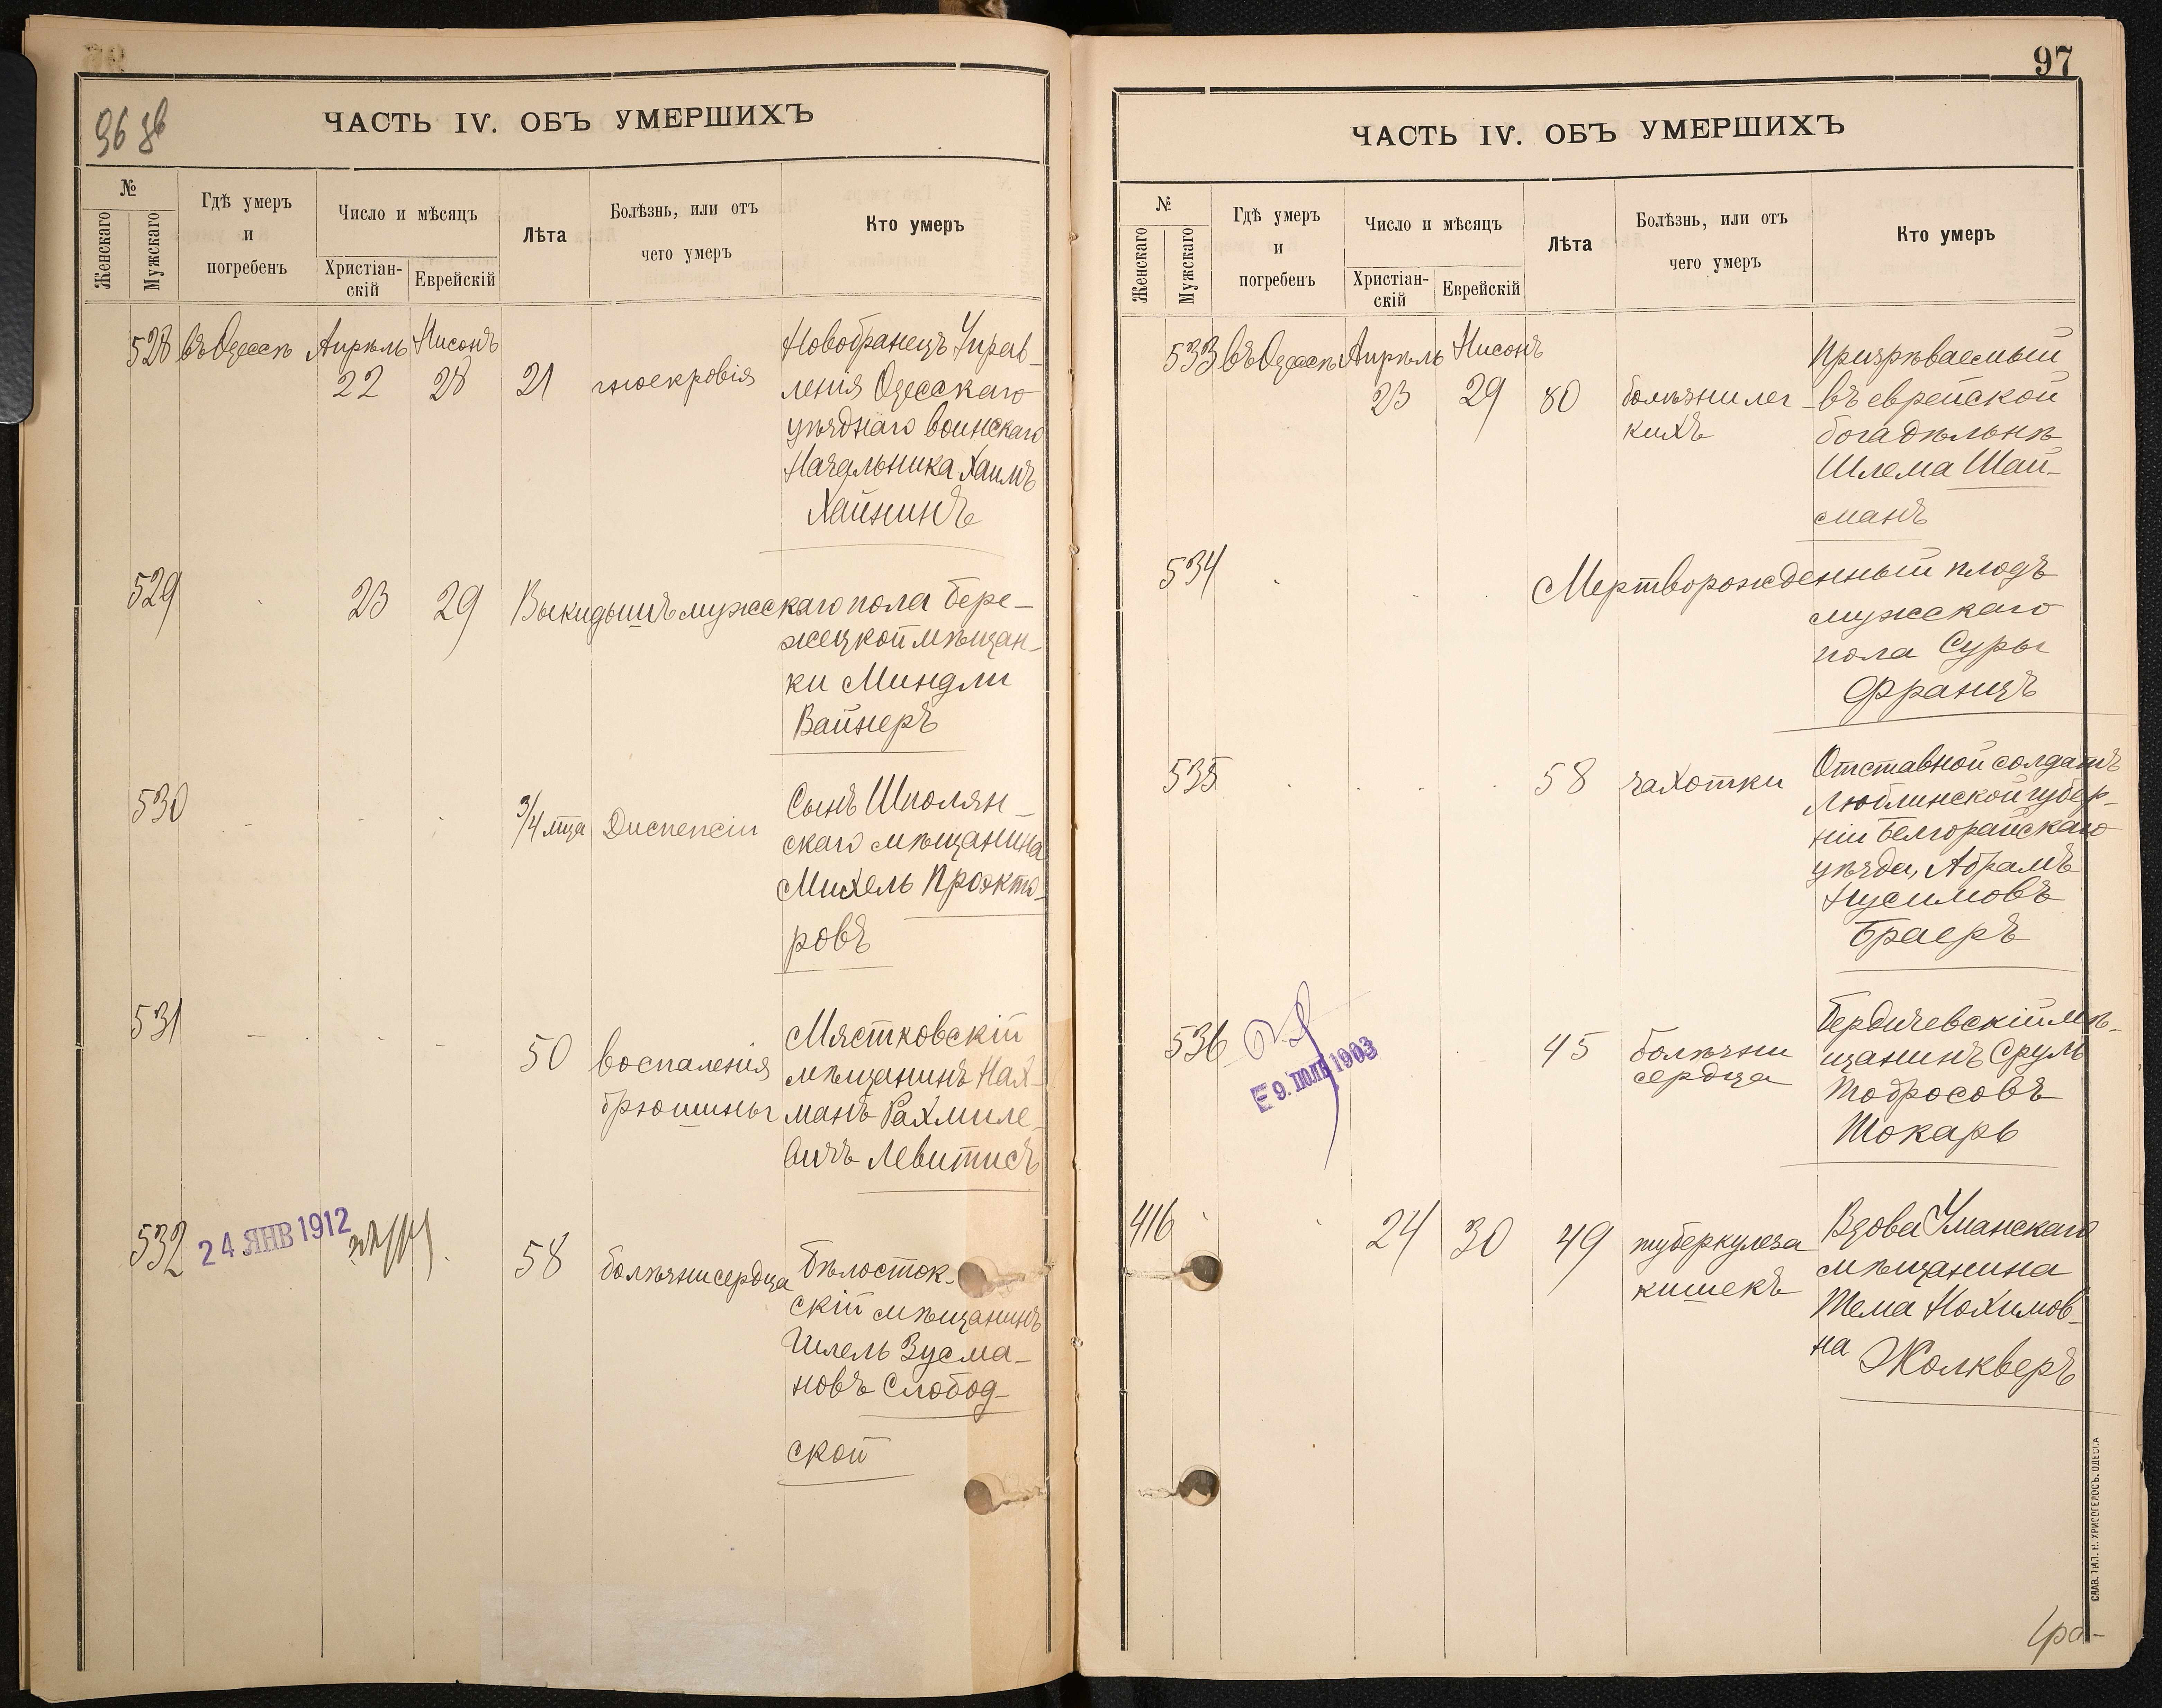 96 зв
ЧАСТЬ IV. ОБЪ УМЕРШИХЪ
№
Женскаго
Мужскаго
Гдѣ умеръ
и
погребенъ
Число и мѣсяцъ
Христіан-
скій
Еврейскій
Лѣта
Болѣзнь, или отъ
чего умеръ
Кто умеръ
528 въ Одессѣ Апрѣль Нисонъ
22 28 21 гноекровія
Новобранецъ Управ-
ленія Одесскаго
уѣзднаго воинскаго
Начальника Хаимъ
Хайкинъ
529 23 29 Выкидышъ мужскаго пола бере-
жецкой мѣщан-
ки Миндли
Вайнеръ
530 3/4 мца Диспепсіи
Сынъ Шполян-
скаго мѣщанина
Михель Проэкто-
ровъ
531 50 воспаленія
брюшины
Мястковскій
мѣщанинъ Нах-
манъ Рахмиле-
вичъ Левитисъ
532 24 ЯНВ 1912
58 болѣзни сердца
Бѣлосток-
скій мѣщанинъ
Шлель Зусма-
новъ Слобод-
ской
97
ЧАСТЬ IV. ОБЪ УМЕРШИХЪ
№
Женскаго
Мужскаго
Гдѣ умеръ
и
погребенъ
Число и мѣсяцъ
Христіан-
скій
Еврейскій
Лѣта
Болѣзнь, или отъ
чего умеръ
Кто умеръ
533 въ Одессѣ Апрѣль Нисонъ
23 29 80 болѣзни лег-
кихъ
Призрѣваемый
въ еврейской
богадѣльнѣ
Шлема Шай-
манъ
534 Мертворожденный плодъ
мужскаго
пола Суры
Францъ
535 58 чахотки
Отставной солдатъ
Люблинской губер-
ніи Белгорайскаго
уѣзда, Абрамъ
Нусимовъ
Браеръ
536 9. ІЮЛЯ 1903
45 болѣзни
сердца
Бердичевскій мѣ-
щанинъ Сруль
Тодросовъ
Токарь
416 24 30 49 туберкулеза
кишекъ
Вдова Уманскаго
мѣщанина
Тема Нохимов-
на Жолкверъ
СЛАВ. ТИП. Н. ХРИСОГЕЛОСЪ. ОДЕССА